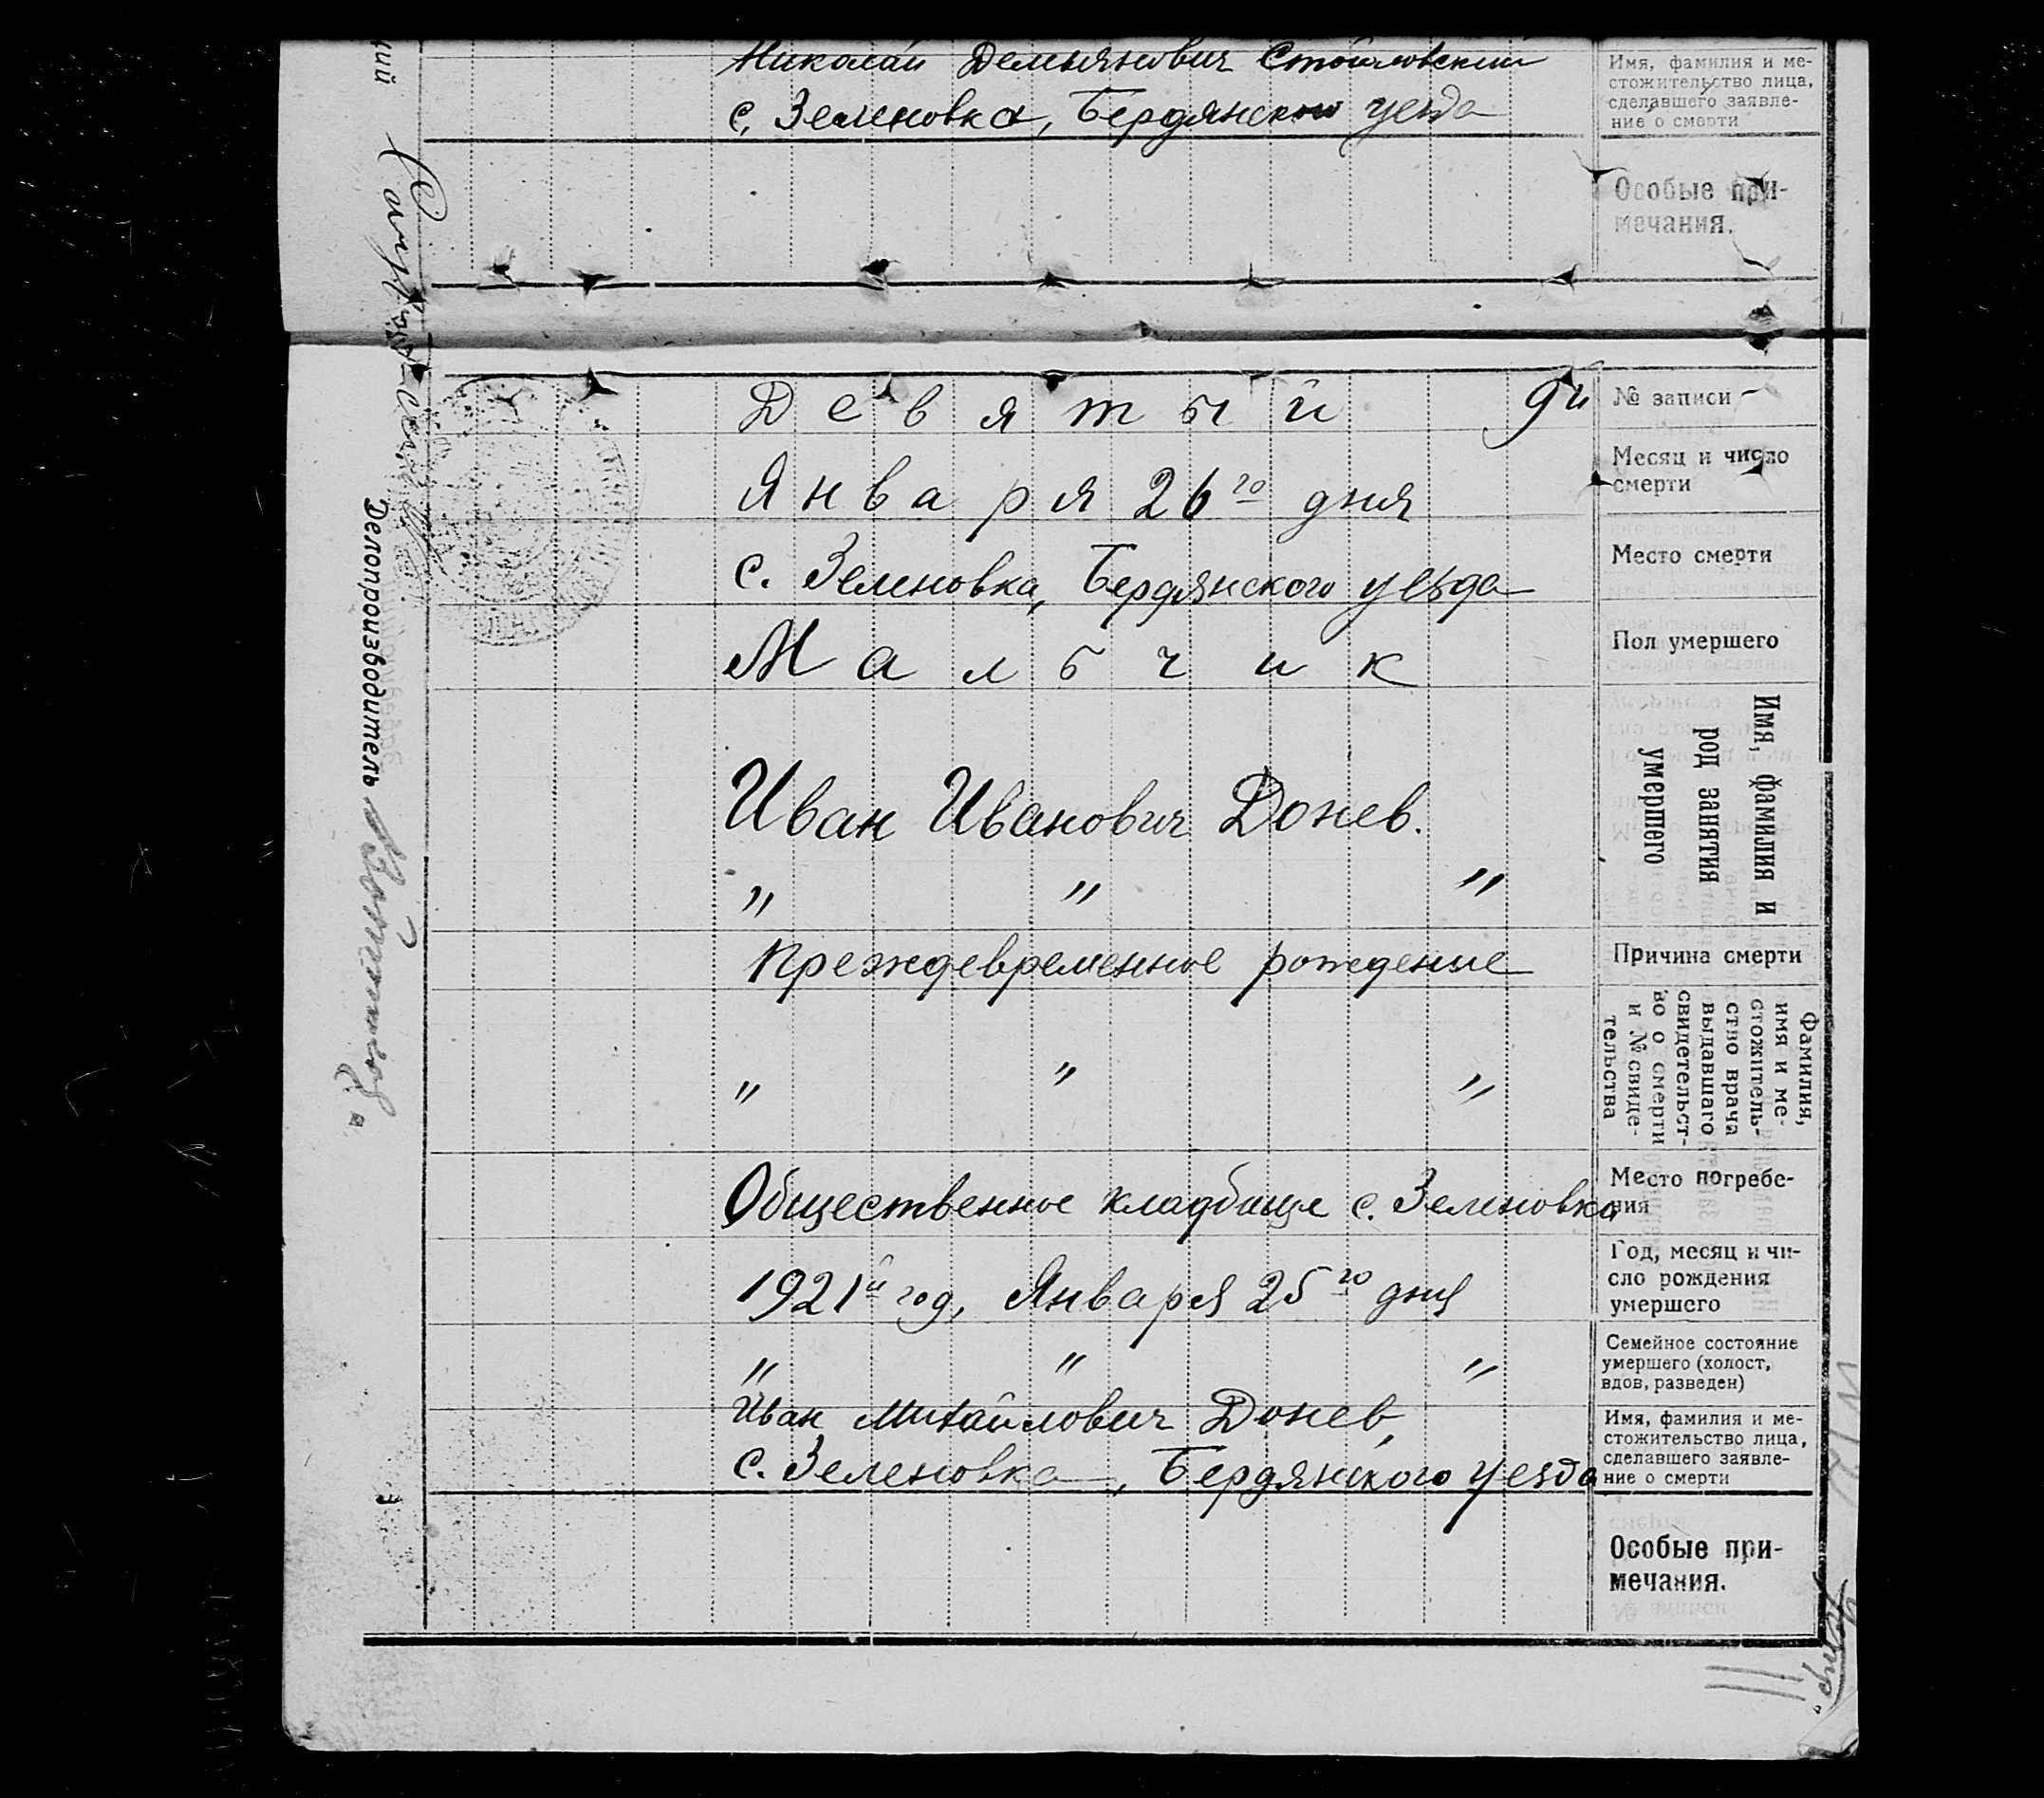 Николай Демьянович Стойловский
с. Зеленовка, Бердянского уезда
Имя, фамилия и ме-
стожительство лица,
сделавшего заявле-
ние о смерти
Особые при-
мечания.
Девятый 9й
№ записи
Января 26го дня
Месяц и число
смерти
с. Зеленовка, Бердянского уезда
Место смерти
Мальчик
Пол умершего
Иван Иванович Донев.
" " "
Имя, фамилия и
род занятия
умершего
преждевременное рождение
Причина смерти
" " "
Фамилия,
имя и ме-
стожитель-
ство врача
выдавшаго
свидетельст-
во о смерти
и № свиде-
тельства
Общественное кладбище с. Зеленовка
Место погребе-
ния
1921й год, Января 25го дня
Год, месяц и чи-
сло рождения
умершего
" " "
Семейное состояние
умершего (холост,
вдов, разведен)
Иван Михайлович Донев,
с. Зеленовка, Бердянского уезда
Имя, фамилия и ме-
стожительство лица,
сделавшего заявле-
ние о смерти
Особые при-
мечания.
Делопроизводитель